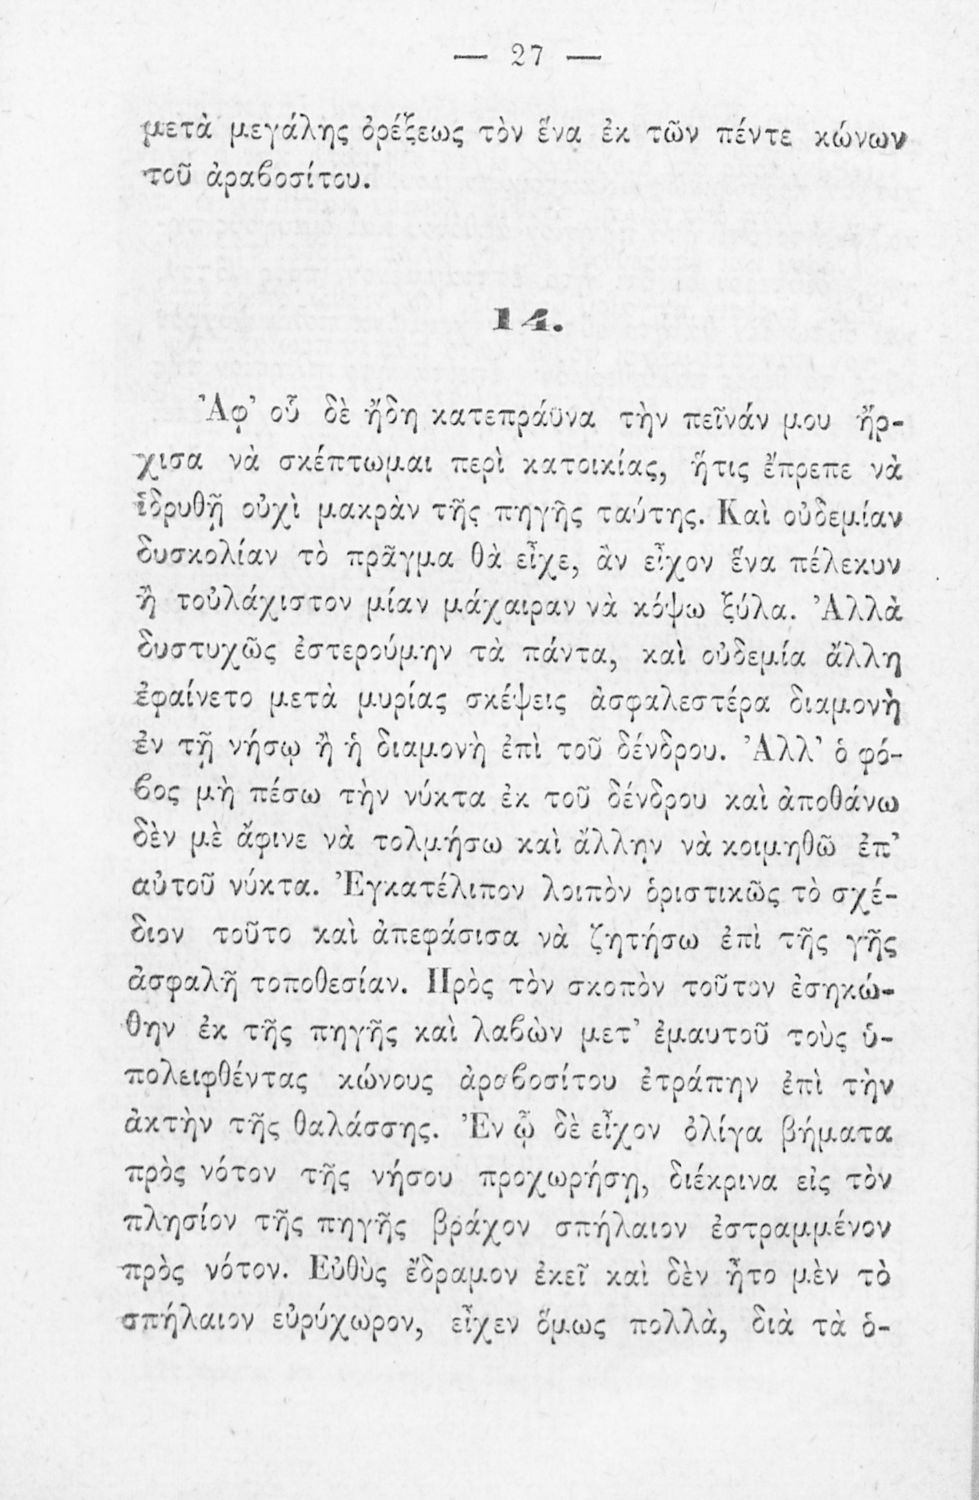 — 27 —
μετὰ μεγάλης ὀρέξεως τὸν ἕνα ἐκ τῶν πέντε κώνων
τοῦ ἀραϐοσίτου.
14.
Ἀφ’ οὗ δὲ ἤδη κατεπράϋνα τὴν πεῖνάν μου ἤρ-
χισα νὰ σκέπτωμαι περὶ κατοικίας, ἥτις ἔπρεπε νὰ
ἱδρυθῇ οὐχὶ μακρὰν τῆς πηγῆς ταύτης. Καὶ οὐδεμίαν
δυσκολίαν τὸ πρᾶγμα θὰ εἶχε, ἂν εἶχον ἕνα πέλεκυν
ἢ τοὐλάχιστον μίαν μάχαιραν νὰ κόψω ξύλα. Ἀλλὰ
δυστυχῶς ἐστερούμην τὰ πάντα, καὶ οὐδεμία ἄλλη
ἐφαίνετο μετὰ μυρίας σκέψεις ἀσφαλεστέρα διαμονὴ
ἐν τῇ νήσῳ ἢ ἡ διαμονὴ ἐπὶ τοῦ δένδρου. Ἀλλ’ ὁ φό-
ϐος μὴ πέσω τὴν νύκτα ἐκ τοῦ δένδρου καὶ ἀποθάνω
δὲν μὲ ἄφινε νὰ τολμήσω καὶ ἄλλην νὰ κοιμηθῶ ἐπ’
αὐτοῦ νύκτα. Ἐγκατέλιπον λοιπὸν ὁριστικῶς τὸ σχέ-
διον τοῦτο καὶ ἀπεφάσισα νὰ ζητήσω ἐπὶ τῆς γῆς
ἀσφαλῆ τοποθεσίαν. Πρὸς τὸν σκοπὸν τοῦτον ἐσηκώ-
θην ἐκ τῆς πηγῆς καὶ λαϐὼν μετ’ ἐμαυτοῦ τοὺς ὑ-
πολειφθέντας κώνους ἀραϐοσίτου ἐτράπην ἐπὶ τὴν
ἀκτὴν τῆς θαλάσσης. Ἐν ᾧ δὲ εἶχον ὀλίγα βήματα
πρὸς νότον τῆς νήσου προχωρήσῃ, διέκρινα εἰς τὸν
πλησίον τῆς πηγῆς βράχον σπήλαιον ἐστραμμένον
πρὸς νότον. Εὐθὺς ἔδραμον ἐκεῖ καὶ δὲν ἦτο μὲν τὸ
σπήλαιον εὐρύχωρον, εἶχεν ὅμως πολλὰ, διὰ τὰ ὁ-